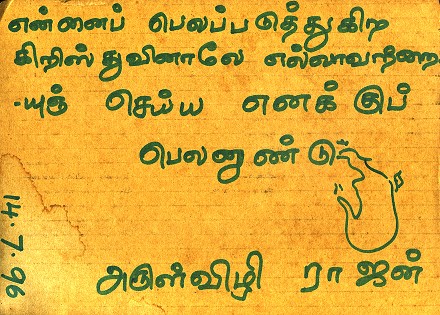 என்னைப் பெலப்படுத்துகிற
கிறிஸ்துவினாலே எல்லாவற்றை
-யுஞ் செய்ய எனக்குப்
பெலனுண்டு
அருள்விழி ராஜன்
14.7.96